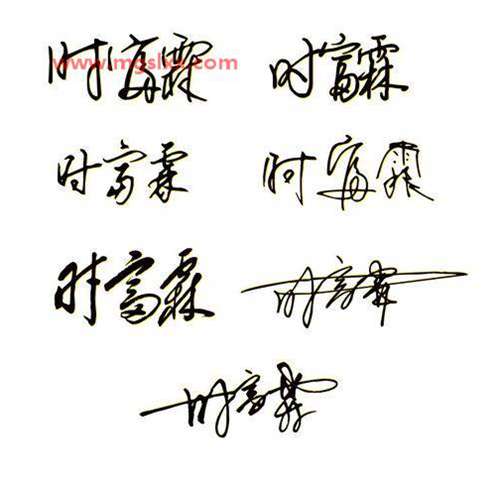 时富霖 时富霖
www.mgslxs.com
时富霖 时富霖
时富霖 时富霖
时富霖